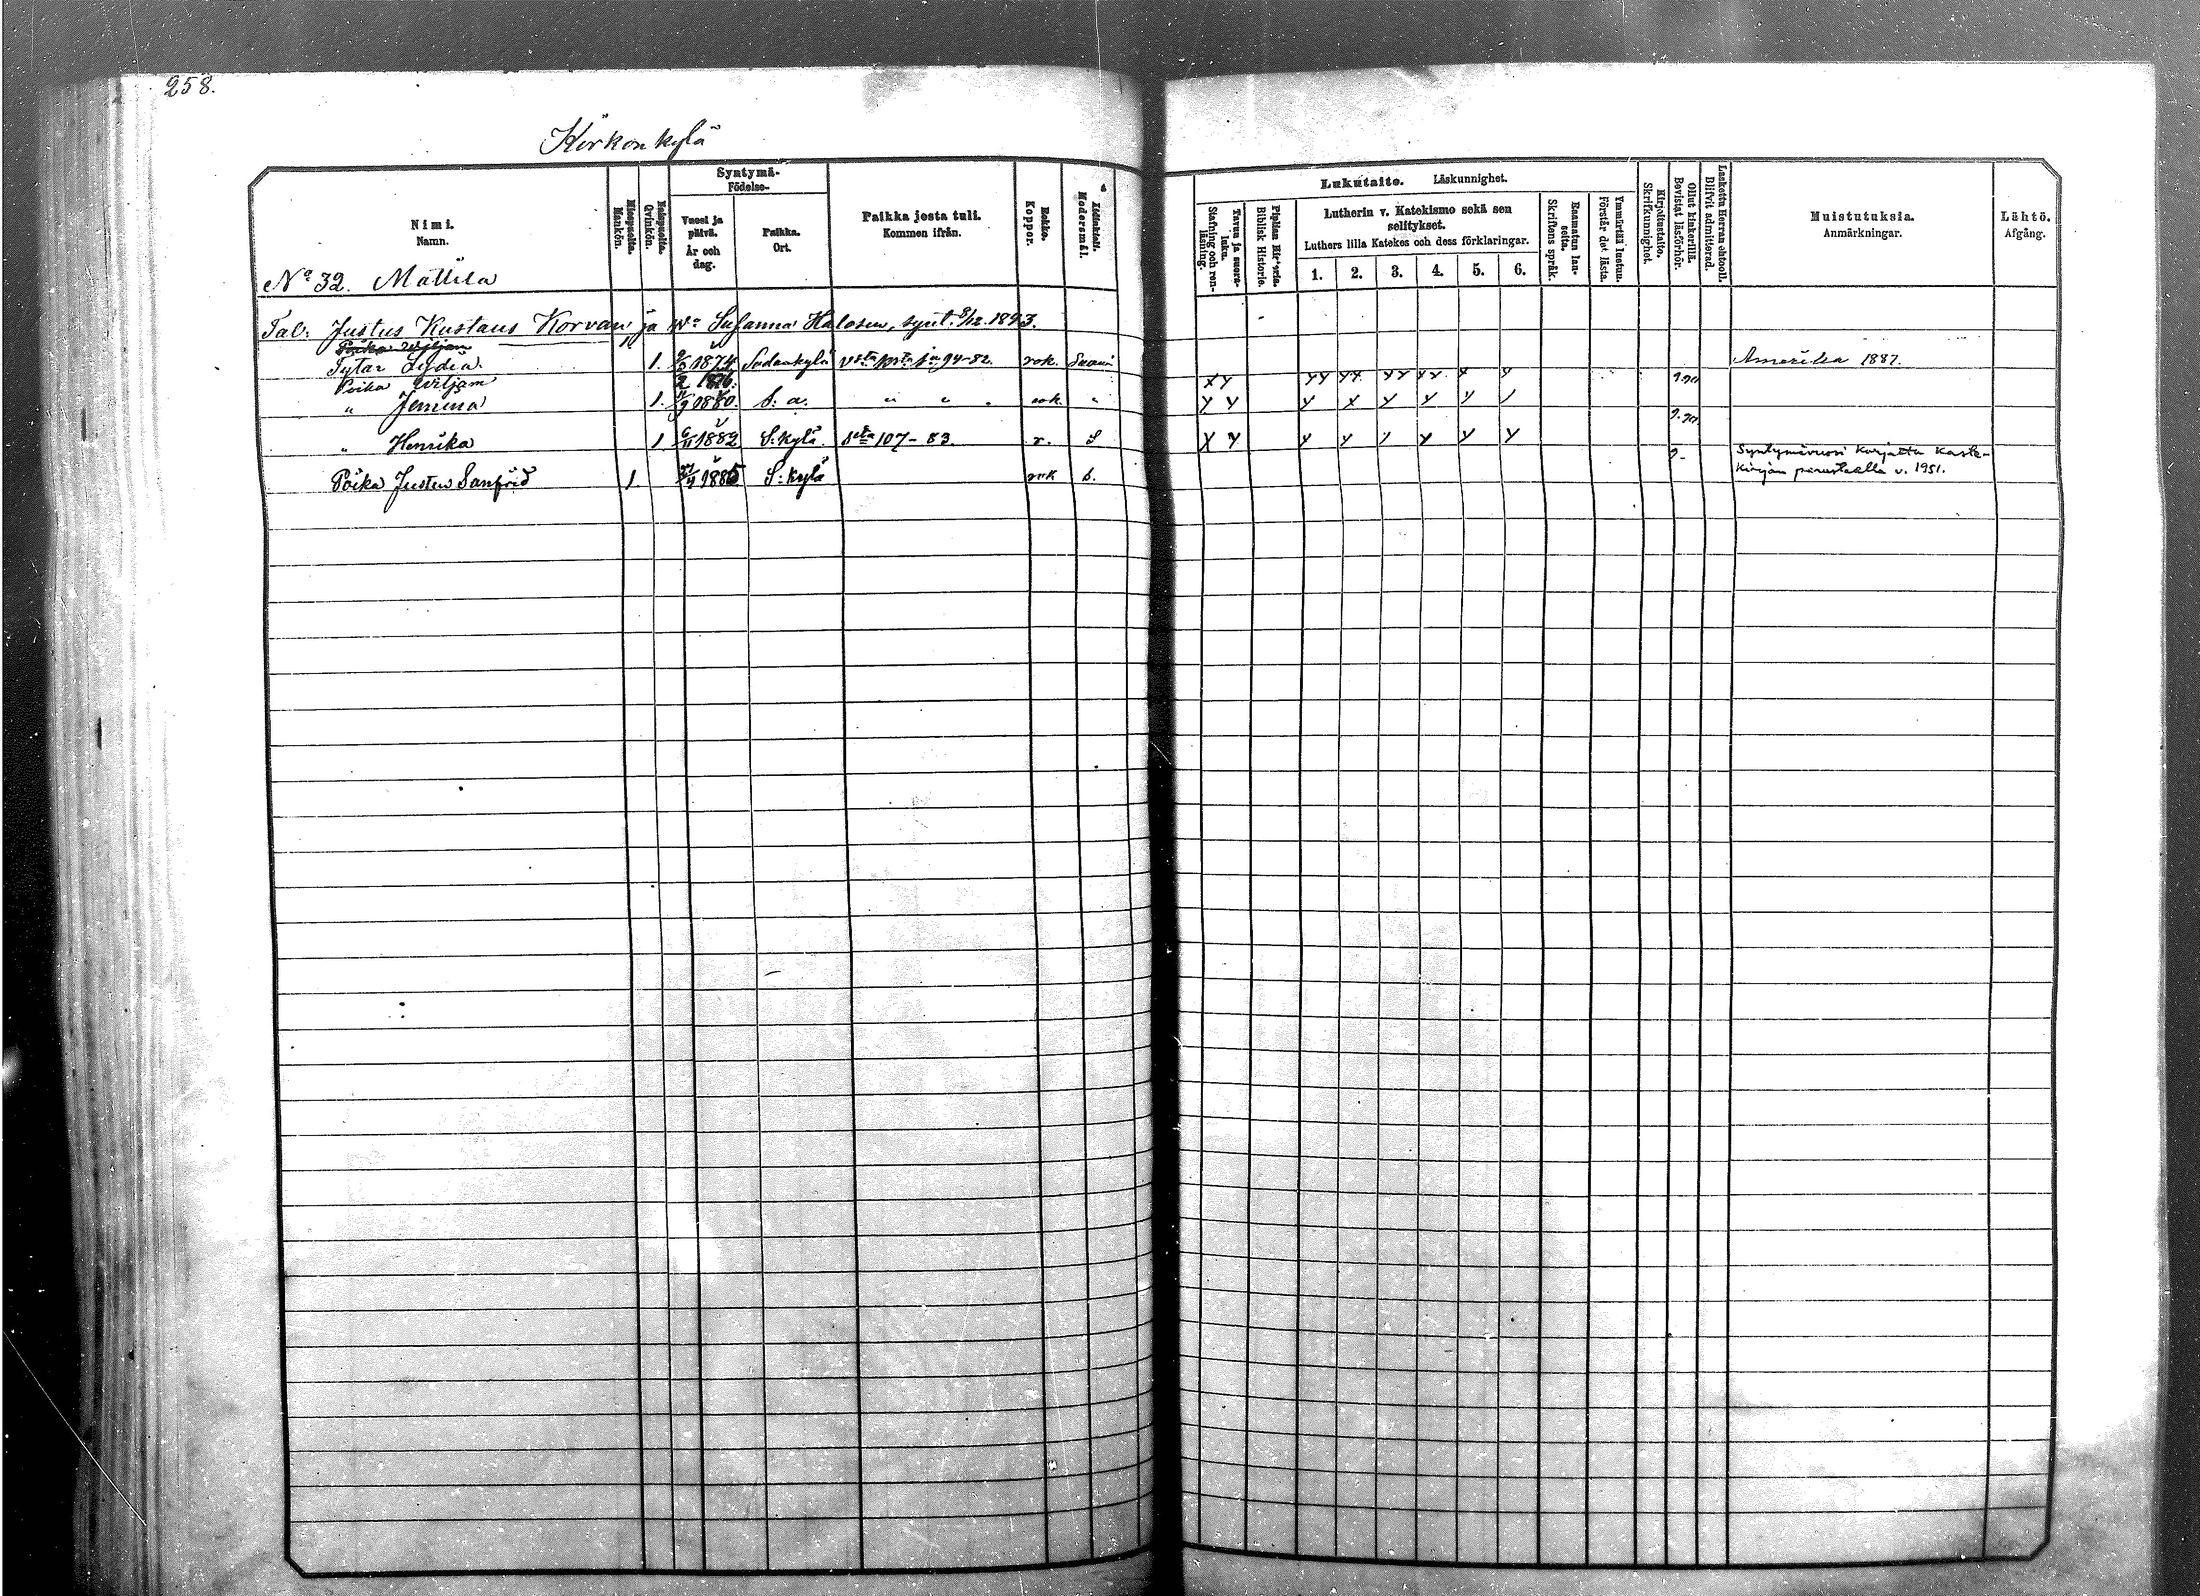 258.
Kirkonkylä
Nimi.
Namn.
Miespuolia.
Mankön.
Naispuolia.
Qvinkön.
Syntymä-
Födelse-
Vuosi ja
päivä.
År och
dag.
Paikka.
Ort.
Paikka josta tuli.
Kommen ifrån.
Rokko.
Koppor.
Äidinkieli.
Modersmål.
Tavuu ja suora-
luku.
Stafning och ren-
läsning.
Piplian Historia.
Biblisk Historie.
Lukutaito. Läskunnighet.
Lutherin v. Katekismo sekä sen
selitykset.
Luthers lilla Katekes och dess förklaringar.
1. 2. 3. 4. 5. 6.
Raamatun lau-
seita.
Skriftens språk.
Ymmärtää luetun.
Förstår det lästa.
Kirjoitustaito.
Skrifkunnighet.
Ollut kinkerillä.
Bevistat läsförhör.
Laskettu Herran ehtoolle.
Blifvit admitterad.
Muistutuksia.
Anmärkningar.
Lähtö.
Afgång.
No 32. Mattila
Tal: Justus Kustaus Korvan ja Wo Susanna Halosen, synt. 8/12.1843.
Poika Wiljam
Tytär Lydia 1. 1874 Sodankylä 94-82. rok. Suomi Amerika 1887.
Poika Wiljam 1 1876. XY YY YY YY YY Y Y
" Jemina 1. 1880 S: a. " " " rok. " Y Y Y X Y Y Y /
" Henrika 1 6/11 1882 S:kylä. 107-83. r. S X Y Y Y / Y Y Y
Syntymävuosi korjattu kaste-
kirjan perusteella v. 1951.
Poika Justus Sanfrid 1 1885 S:kylä rok s.